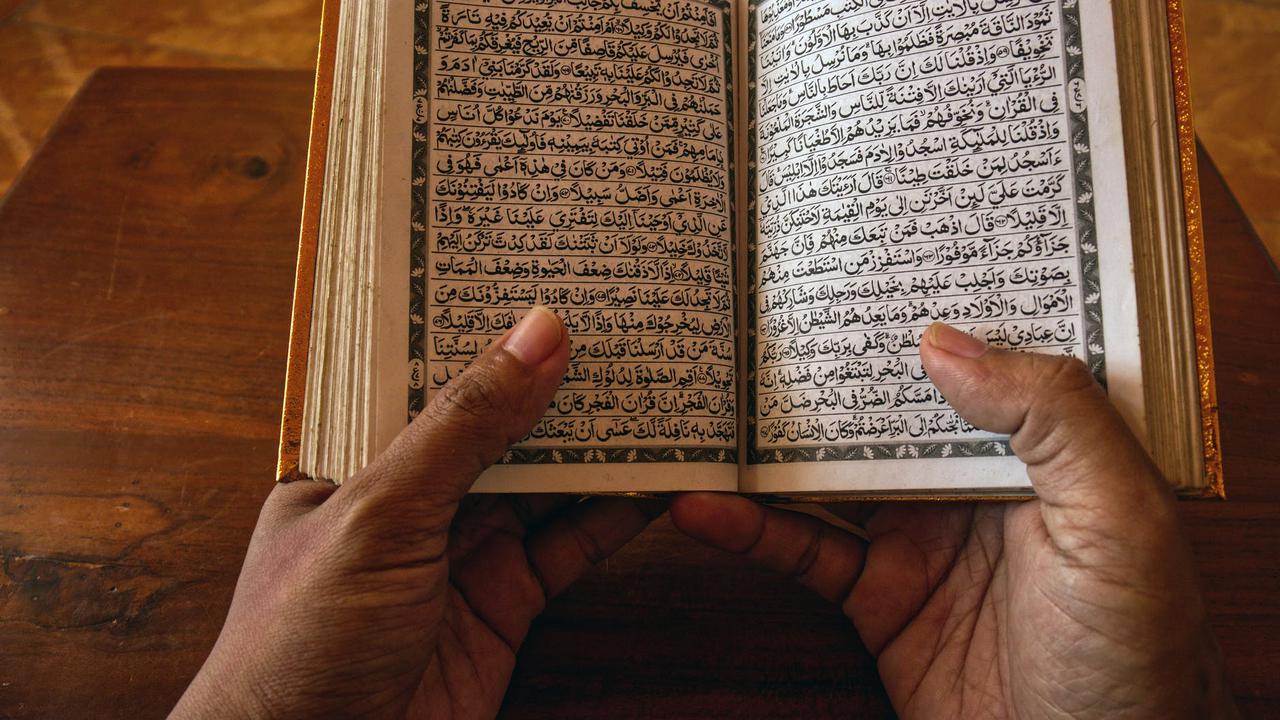 نرسل بالايت الا ان كذب بها الاولون واتينا
ثمود الناقة مبصرة فظلموا بها وما نرسل بالايت الا
تخويفا واذ قلنا لك ان ربك احاط بالناس وما جعلنا
الرءيا التي ارينك الا فتنة للناس والشجرة الملعونة
في القران ونخوفهم فما يزيدهم الا طغيانا كبيرا
واذ قلنا للملئكة اسجدوا لادم فسجدوا الا ابليس قال
ءاسجد لمن خلقت طينا قال ارءيتك هذا الذي
كرمت علي لئن اخرتن الى يوم القيمة لاحتنكن ذريته
الا قليلا قال اذهب فمن تبعك منهم فان جهنم
جزاؤكم جزاء موفورا واستفزز من استطعت منهم
بصوتك واجلب عليهم بخيلك ورجلك وشاركهم في
الاموال والاولاد وعدهم وما يعدهم الشيطن الا غرورا
ان عبادي ليس سلطن وكفى بربك وكيلا ربكم
في البحر لتبتغوا من فضله انه
مسكم الضر في البحر ضل من
الى البر اعرضتم وكان الانسان كفورا
لا تجدوا لكم وكيلا ام امنتم ان يعيدكم فيه تارة
اخرى فيرسل عليكم قاصفا من الريح فيغرقكم بما كفرتم
ثم لا تجدوا لكم علينا به تبيعا ولقد كرمنا بني ادم و
حملنهم في البر والبحر ورزقنهم من الطيبت وفضلنهم
على كثير ممن خلقنا تفضيلا يوم ندعوا كل اناس
بامامهم فمن اوتي كتبه بيمينه فاولئك يقرءون كتبهم
ولا يظلمون فتيلا ومن كان في هذه اعمى فهو في
الاخرة اعمى واضل سبيلا وان كادوا ليفتنونك
عن الذي اوحينا اليك لتفتري علينا غيره واذا
لاتخذوك خليلا ولولا ان ثبتنك لقد كدت تركن اليهم
شيئا قليلا اذا لاذقنك ضعف الحيوة وضعف الممات
ثم لا تجد لك علينا نصيرا وان كادوا ليستفزونك من
الارض ليخرجوك منها واذا لا خلفك الا قليلا
سنة من قد ارسلنا قبلك من لسنتنا
تحويلا اقم الصلوة لدلوك
وقران الفجر ان قران الفجر كان
فتهجد به نافلة لك عسى ان يبعثك